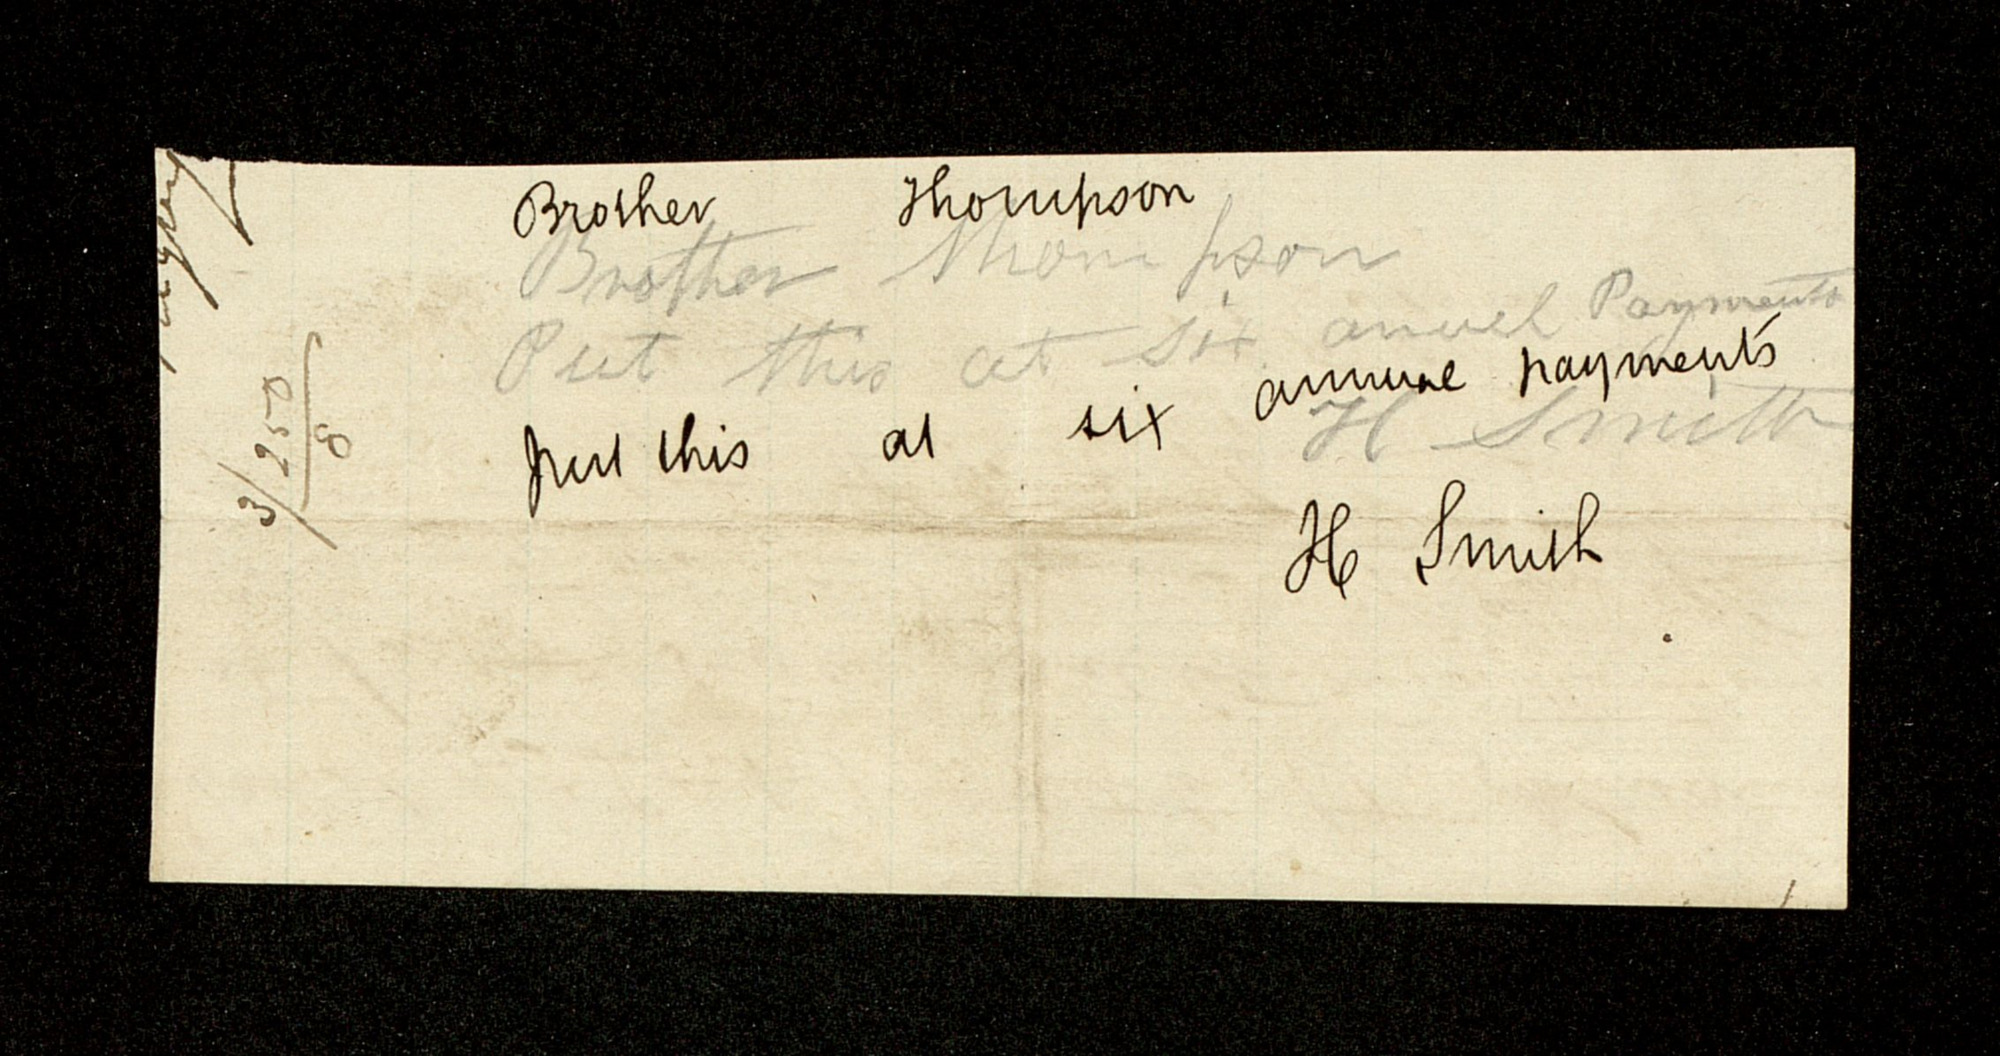 Brother Thompson
Brother Thompson
Put this at six anuel Payments
put this at six annual payments
H Smith
H Smith
3/250
8